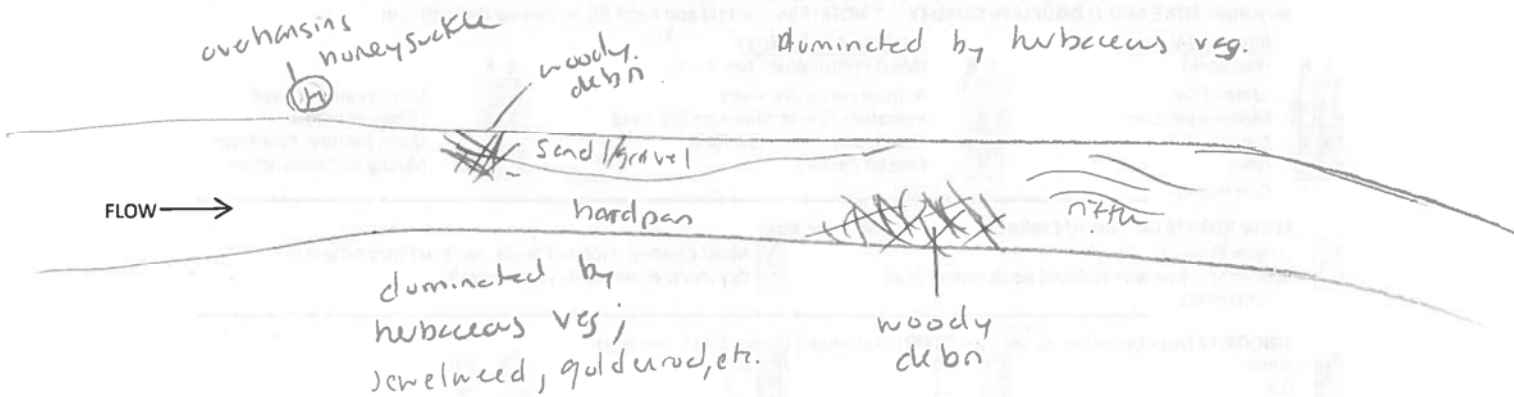 overhansins
honeysuckle
woody
debri
Dominated by herbaceous veg.
Sand/gravel
FLOW
hardpan
riffle
dominated by
herbaceous veg,
jewelweed, goldenrod, etc.
woody
debri